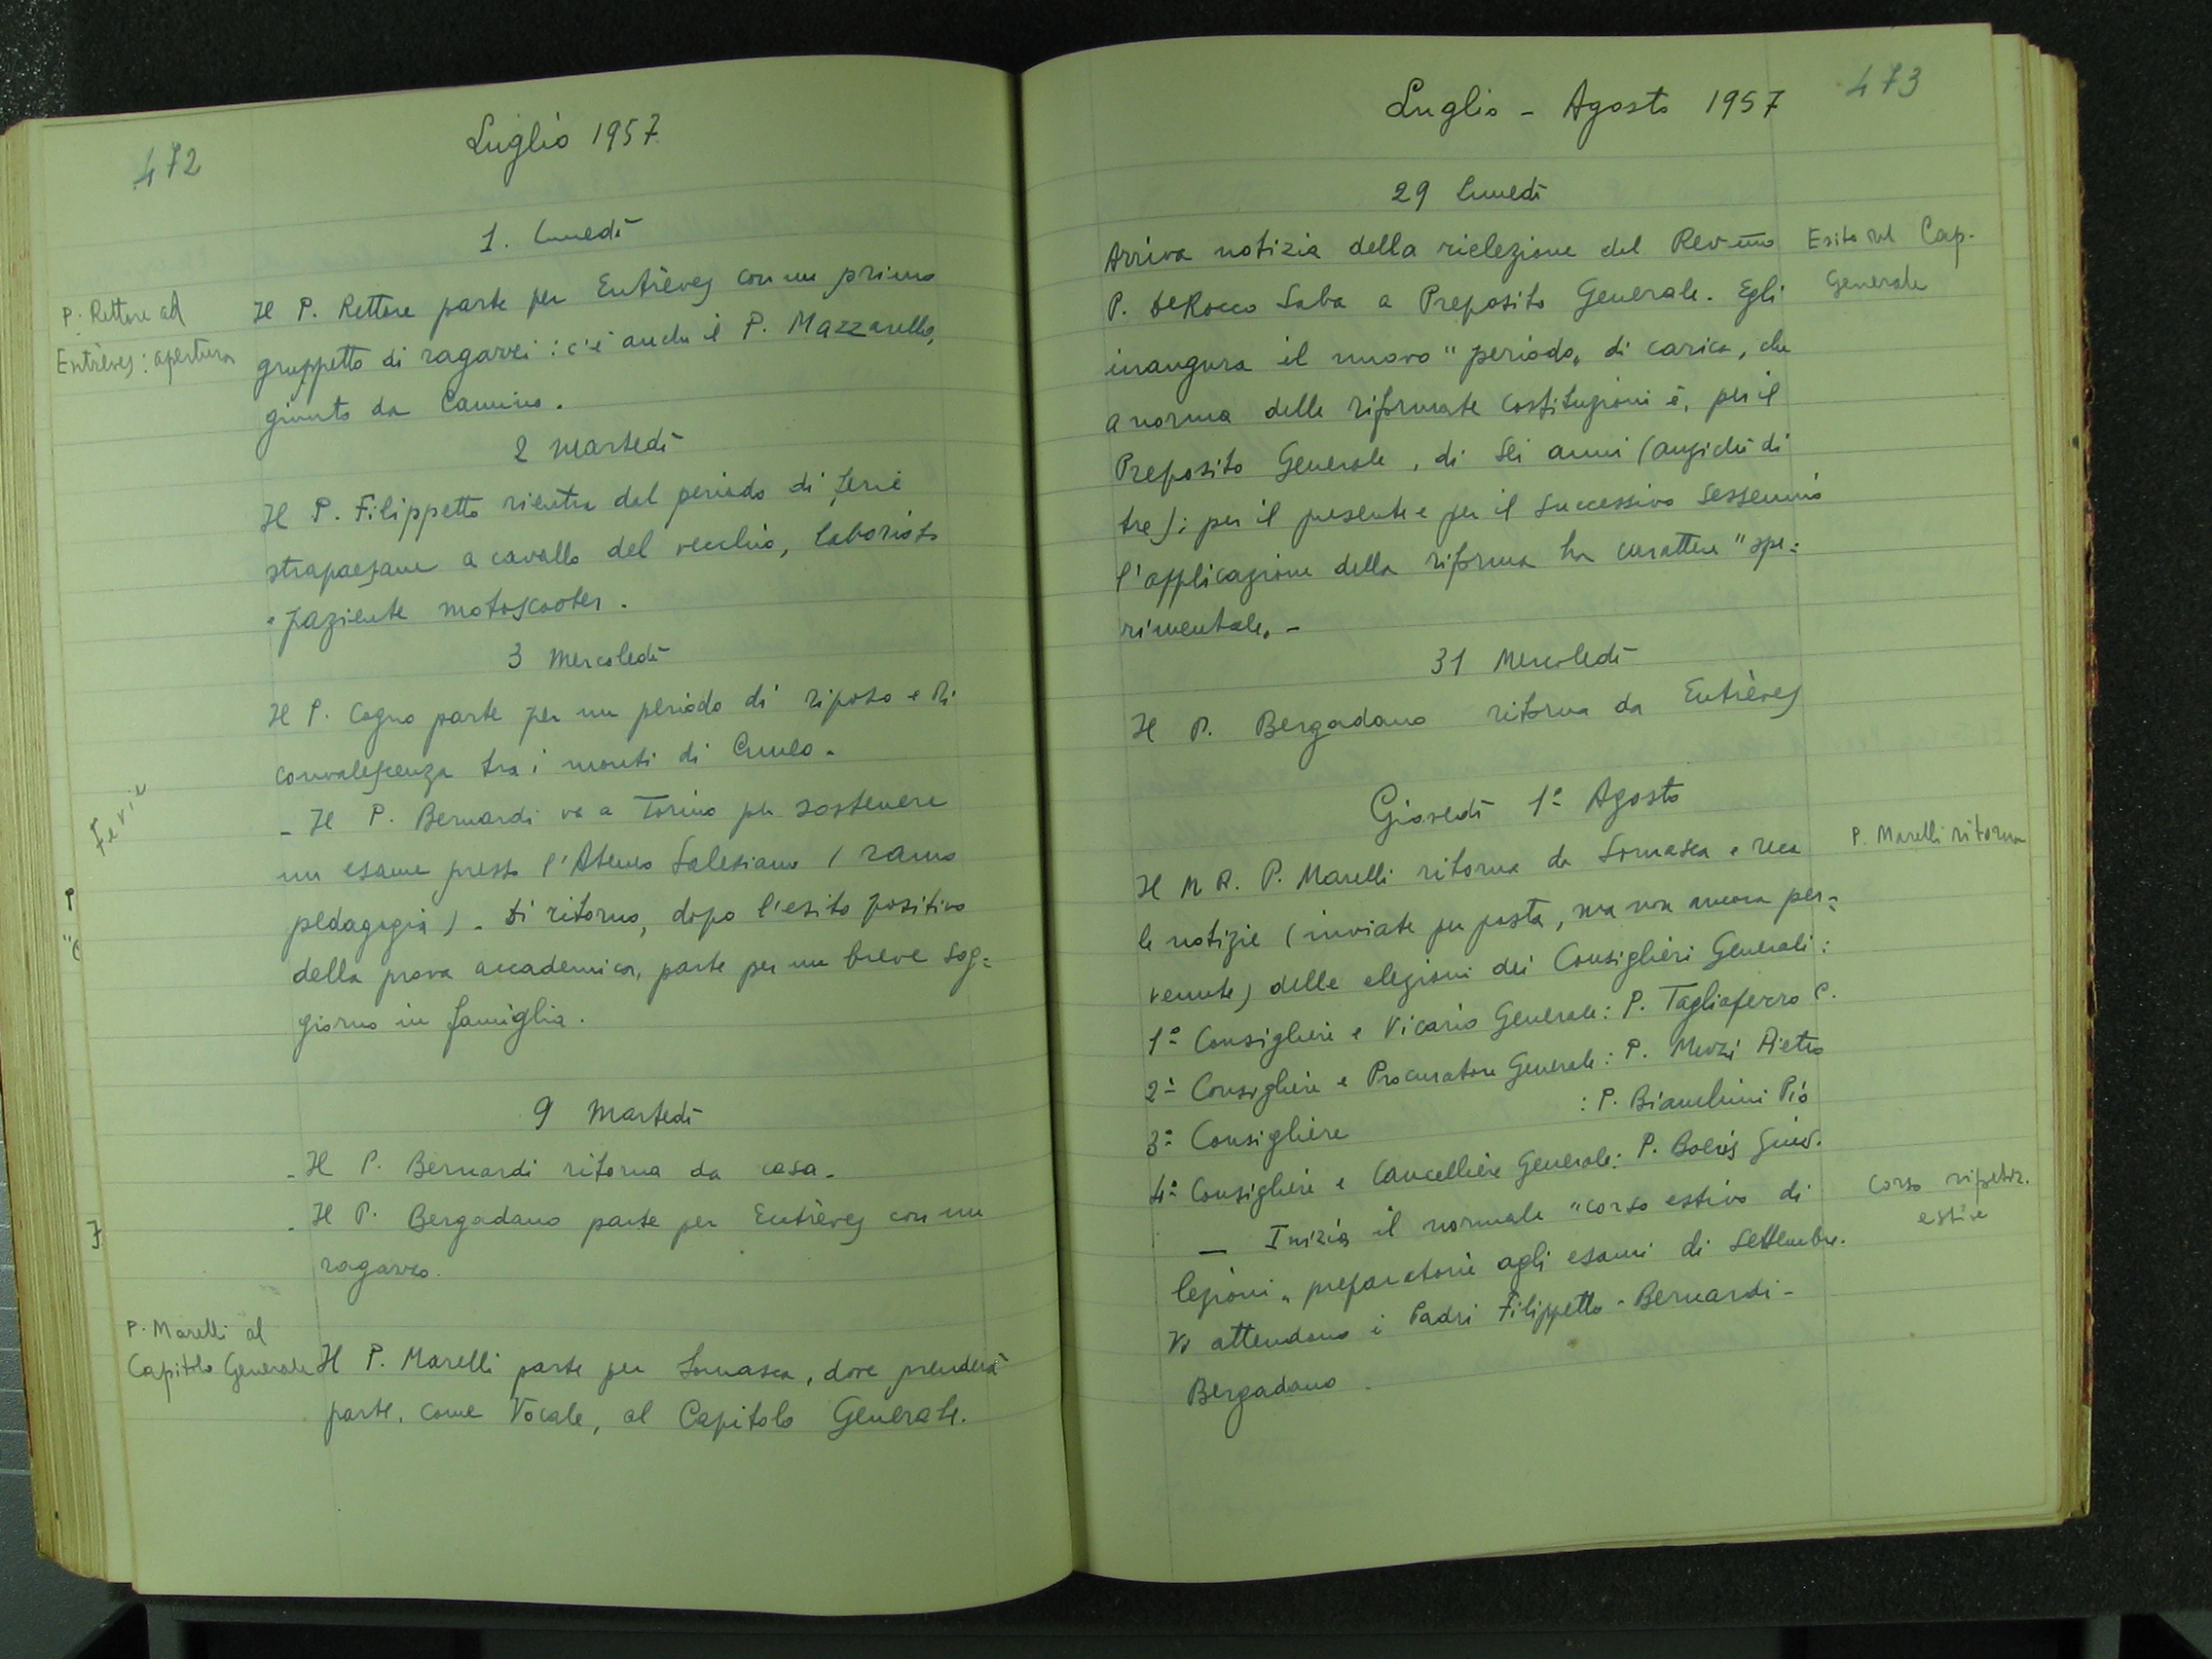 472
Luglio 1957
1. Lunedì
P. Rettore ad
Entrèves: apertura
Il P. Rettore parte per Entrèves con un primo
gruppetto di ragazzi: c'è anche il P. Mazzarello,
giunto da Camino.
2 Martedì
Il P. Filippetto rientra dal periodo di ferie
strapaesane a cavallo del vecchio, laborioso
e paziente motoscooter.
3 Mercoledì
Il P. Cogno parte per un periodo di riposo e di
convalescenza tra i monti di Cuneo.
Ferie
- Il P. Bernardi va a Torino per sostenere
un esame presso l'Ateneo Salesiano (ramo
pedagogia). Di ritorno, dopo l'esito positivo
della prova accademica, parte per un breve sog=
giorno in famiglia.
9 Martedì
- Il P. Bernardi ritorna da casa.
- Il P. Bergadano parte per Entrèves con un
ragazzo.
P. Marelli al
Capitolo Generale
Il P. Marelli parte per Somasca, dove prenderà
parte, come Vocale, al Capitolo Generale.
473
Luglio - Agosto 1957
29 Lunedì
Arriva notizia della rielezione del Rev.mo
Esito del Cap.
Generale
P. DeRocco Saba a Preposito Generale. Egli
inaugura il nuovo "periodo" di carica, che
a norma delle riformate costituzioni è, per il
Preposito Generale, di sei anni (anziché di
tre); per il presente e per il successivo sessennio
l'applicazione della riforma ha carattere "spe=
rimentale". -
31 Mercoledì
Il P. Bergadano ritorna da Entrèves
Giovedì 1° Agosto
P. Marelli ritorna
Il M R. P. Marelli ritorna da Somasca e reca
le notizie (inviate per posta, ma non ancora per=
venute) delle elezioni dei Consiglieri Generali:
1° Consigliere e Vicario Generale: P. Tagliaferro C.
2° Consigliere e Procuratore Generale: P. Pietro
3° Consigliere : P. Bianchini Pio
4° Consigliere e Cancelliere Generale: P. Boeris
Corso ripetiz.
estive
- Inizia il normale "corso estivo di
lezioni" preparatorie agli esami di Settembre.
Vi attendono i Padri Filippetto - Bernardi -
Bergadano.